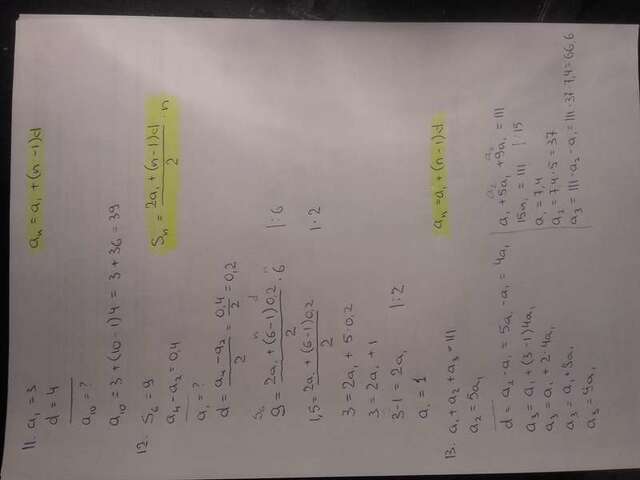 11. a₁ = 3    aₙ = a₁ + (n-1)d
d = 4
a₁₀ = ?
a₁₀ = 3 + (10-1)4 = 3 + 36 = 39
12. S₆ = 9    Sₙ = (2a₁ + (n-1)d)/2 · n
a₄ - a₂ = 0,4
a₁ = ?
d = (a₄ - a₂)/2 = 0,4/2 = 0,2
S₆ n d n
9 = (2a₁ + (6-1)0,2)/2 · 6    |:6
1,5 = (2a₁ + (6-1)0,2)/2    | · 2
3 = 2a₁ + 5·0,2
3 = 2a₁ + 1
3-1 = 2a₁    |:2
a₁ = 1
13. a₁ + a₂ + a₃ = 111    aₙ = a₁ + (n-1)d
a₂ = 5a₁
d = a₂ - a₁ = 5a₁ - a₁ = 4a₁
a₃ = a₁ + (3-1)4a₁
a₃ = a₁ + 2·4a₁
a₃ = a₁ + 8a₁
a₃ = 9a₁
a₂ a₃
a₁ + 5a₁ + 9a₁ = 111
15a₁ = 111 | 15
a₁ = 7,4
a₂ = 7,4 · 5 = 37
a₃ = 111 - a₂ - a₁ = 111 - 37 7,4 = 66,6